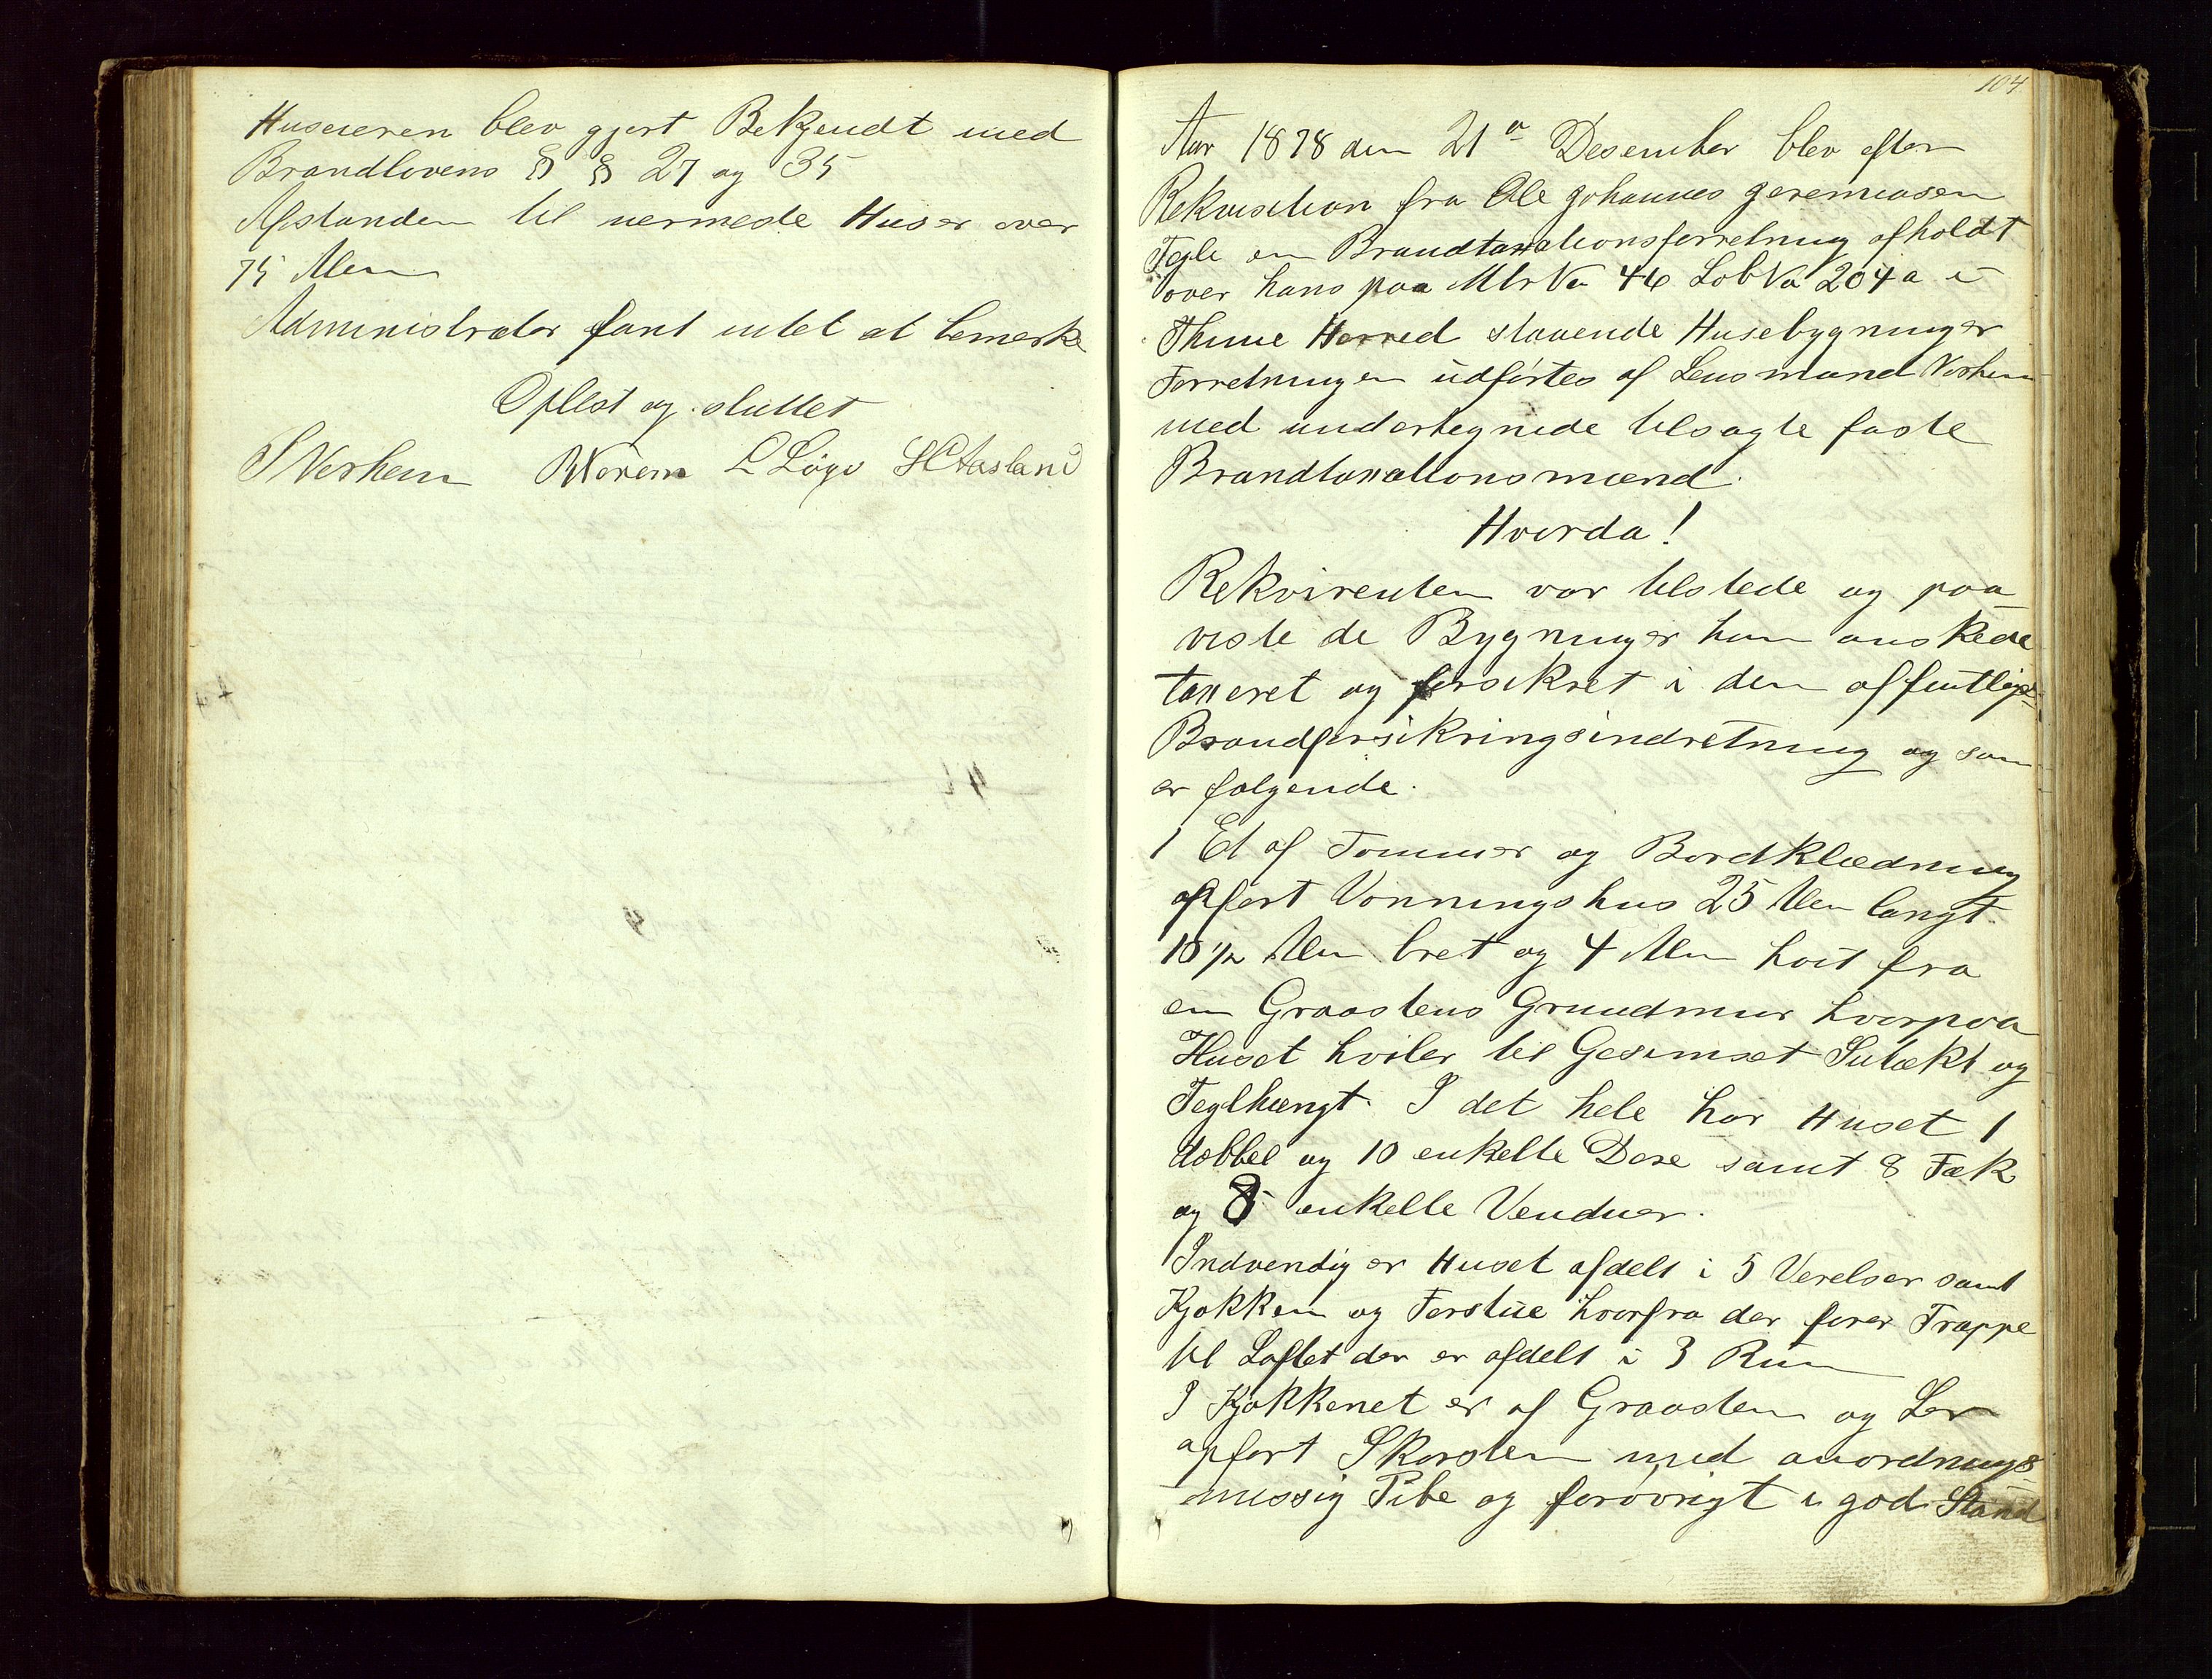 Huseieren blev gjort Bekjendt med
Brandlovens § § 27 og 35
Afstanden til nermeste Huser over
75 Alen
Administrator fant intet at bemerke
Oplest og sluttet
S Verhem R Norem L Lögo SC Aasland
104
Aar 1878 den 21a Desember blev efter
Rekvisition fra Ole Johannes Jeremiasen
Tegle en Brandtaxationsforretning afholdt
over hans paa Mtr No 46 Lob No 204a i
Thime Herred staaende Husebygninger
Forretningen udførtes af Lensmand Verhem
med undertegnede tilsagte faste
Brandtaxationsmænd.
Hvorda!
Rekvirenten var tilstede og paa
viste de Bygninger han ønskede
taxeret og forsikret i den offentlige
Brandforsikringsindretning og som
er følgende.
1 Et af Tømmer og Bordklædning
opført Vonningshus 25 Alen langt
10 1/2 Alen bret og 4 Alen høit fra
en Graastens Grundmur hvorpaa
Huset hviler til Gesimset Sutækt og
Teglhængt. I det hele har Huset 1
dobbel og 10 enkelte Døre samt 8 Fæk
og 8 enkelte Venduer.
Indvendig er Huset afdelt i 5 Verelser samt
Kjøkken og Forstue hvorfra der fører Trappe
til Loftet der er afdelt i 3 Rum
I Kjøkkenet er af Graasten og Ler
opført Skorsten med anordnings
messig Pibe og forøvrigt i god Stand